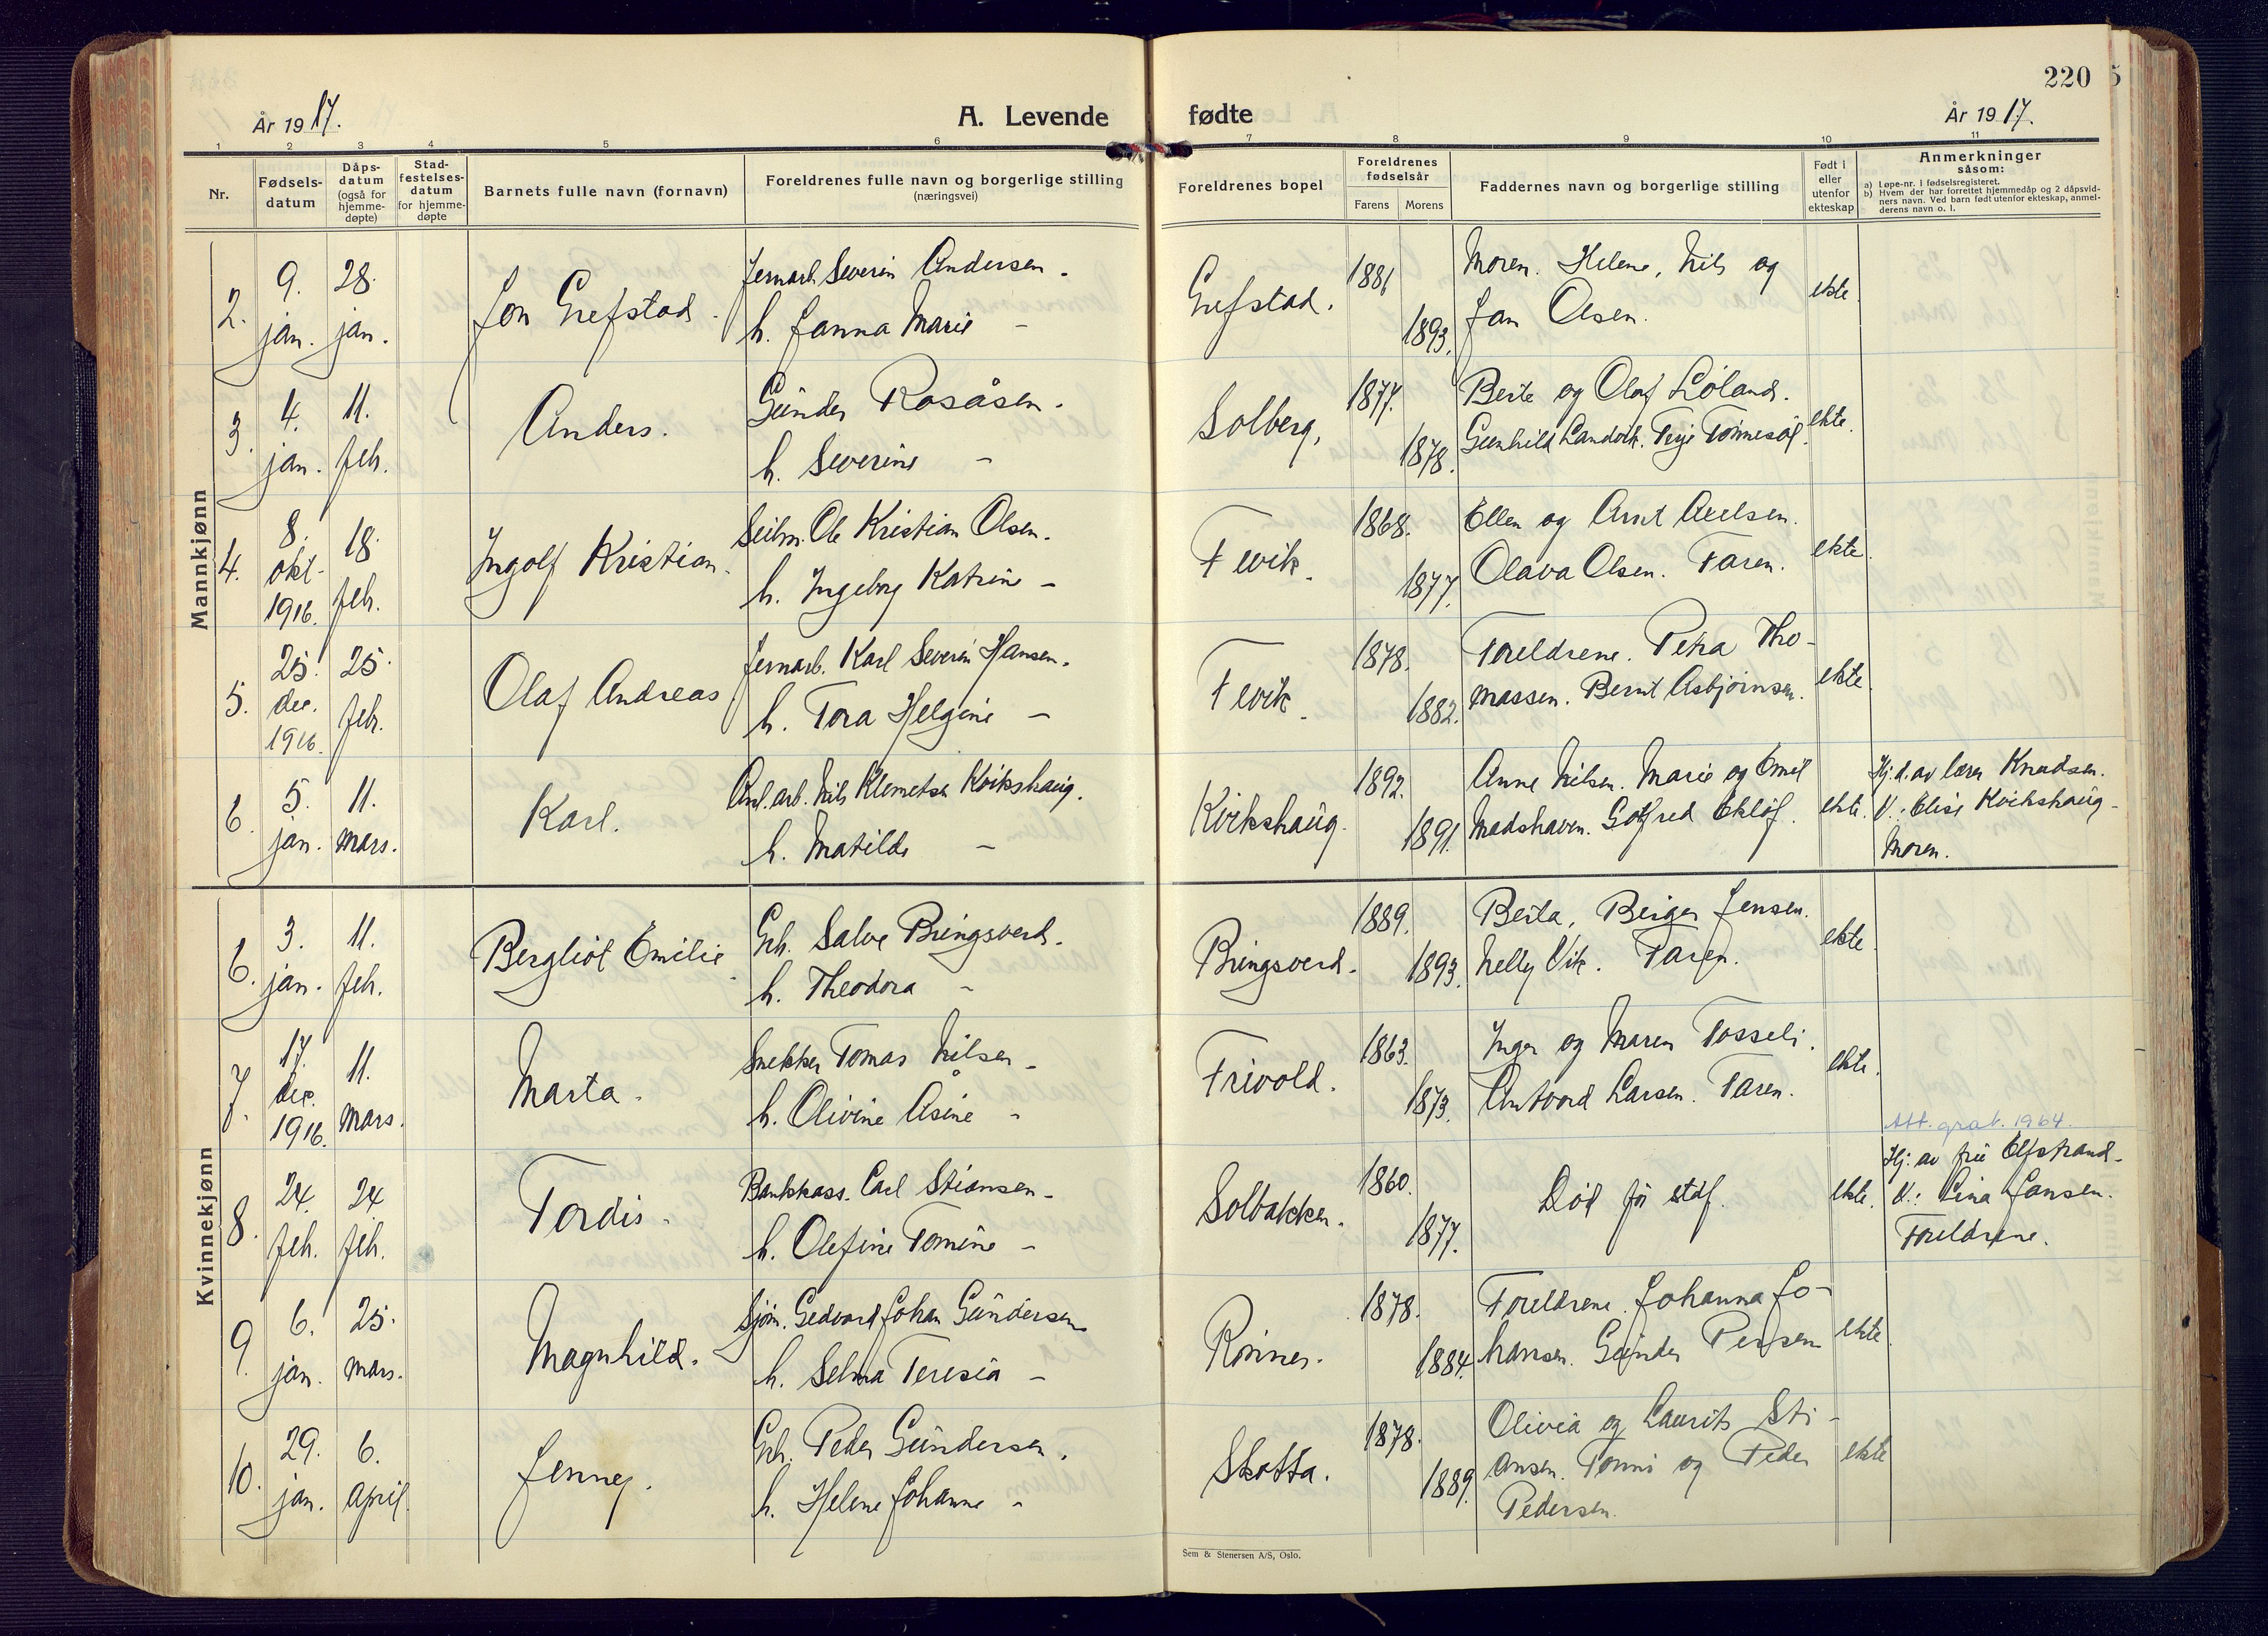 220
År 1917.
A. Levende fødte
År 1917.
1 2 3 4 5 6 7 8 9 10 11
Nr.
Fødsels-
datum
Dåps-
datum
(også for
hjemme-
døpte)
Stad-
festelses-
datum
for hjemme-
døpte
Barnets fulle navn (fornavn)
Foreldrenes fulle navn og borgerlige stilling
(næringsvei)
Foreldrenes bopel
Foreldrenes
fødselsår
Farens Morens
Faddernes navn og borgerlige stilling
Født i
eller
utenfor
ekteskap
Anmerkninger
såsom:
a) Løpe-nr. i fødselsregisteret.
b) Hvem der har forrettet hjemmedåp og 2 dåpsvid-
ners navn. Ved barn født utenfor ekteskap, anmel-
derens navn o. l.
Mannkjønn
2. 9. jan. 28. jan. Jon Grefstad.
Jernarb. Severin Andersen.
h. Janna Marie –
Grefstad. 1881 1893.
Moren. Helene, Nils og
Jan Olsen.
ekte.
3. 4. jan. 11. feb. Anders.
Gunder Rosåsen.
h. Severine –
Solberg, 1877. 1878.
Berte og Olaf Løland.
Gunhild Landvik. Terje Tønnesøl.
ekte.
4. 8. okt. 1916. 18. feb. Ingolf Kristian.
Seilm. Ole Kristian Olsen.
h. Ingeborg Katrine –
Fevik. 1868. 1877.
Ellen og Arnt Axelsen.
Olava Olsen. Faren.
ekte.
5. 25. dec. 1916. 25. feb. Olaf Andreas
Jernarb. Karl Severin Hansen.
h. Tora Helgine –
Fevik. 1878. 1882.
Foreldrene. Petra Tho-
massen. Bernt Asbjørnsen.
ekte.
6. 5. jan. 11. mars. Karl.
Anl. arb. Nils Klemetsen Kvikshaug.
h. Matilde –
Kvikshaug. 1892. 1891.
Anne Nilsen. Marie og Emil
Madshaven. Gotfred Ekløf.
ekte.
Hj. d. av lærer Knudsen.
V.: Elise Kvikshaug.
Moren.
Kvinnekjønn
6. 3. jan. 11. feb. Bergliot Emilie.
Grb. Salve Bringsverd.
h. Theodora –
Bringsverd. 1889. 1893.
Berta, Berger Jensen.
Nelly Vik. Faren.
ekte.
7. 17. dec. 1916. 11. mars. Marta.
Snekker Tomas Nilsen –
h. Olivine Åsine –
Frivold. 1863. 1873.
Inger og Maren Tosseli.
Antvord Larsen. Faren.
ekte.
Att. grat. 1964.
8. 24. feb. 24 feb. Tordis.
Bankkass. Carl Stiansen –
h. Olefine Tomine –
Solbakken. 1860. 1877.
Død før stdf.
ekte.
Hj. av fru Elfstrand –
V.: Lina Jansen.
Foreldrene.
9. 6. jan. 25. mars. Magnhild.
Sjøm. Gedvard Johan Gundersen
h. Selma Teresia –
Rønnes. 1878. 1884.
Foreldrene. Johanna Jo-
hansen. Gunder Persen
ekte
10. 29. jan. 6. April. Jenny.
Grb. Peder Gundersen.
h. Helene Johanne –
Skotta. 1878. 1889.
Olivia og Laurits Sti-
ansen. Tomi og Peder
Pedersen.
ekte
Sem & Stenersen A/S, Oslo.